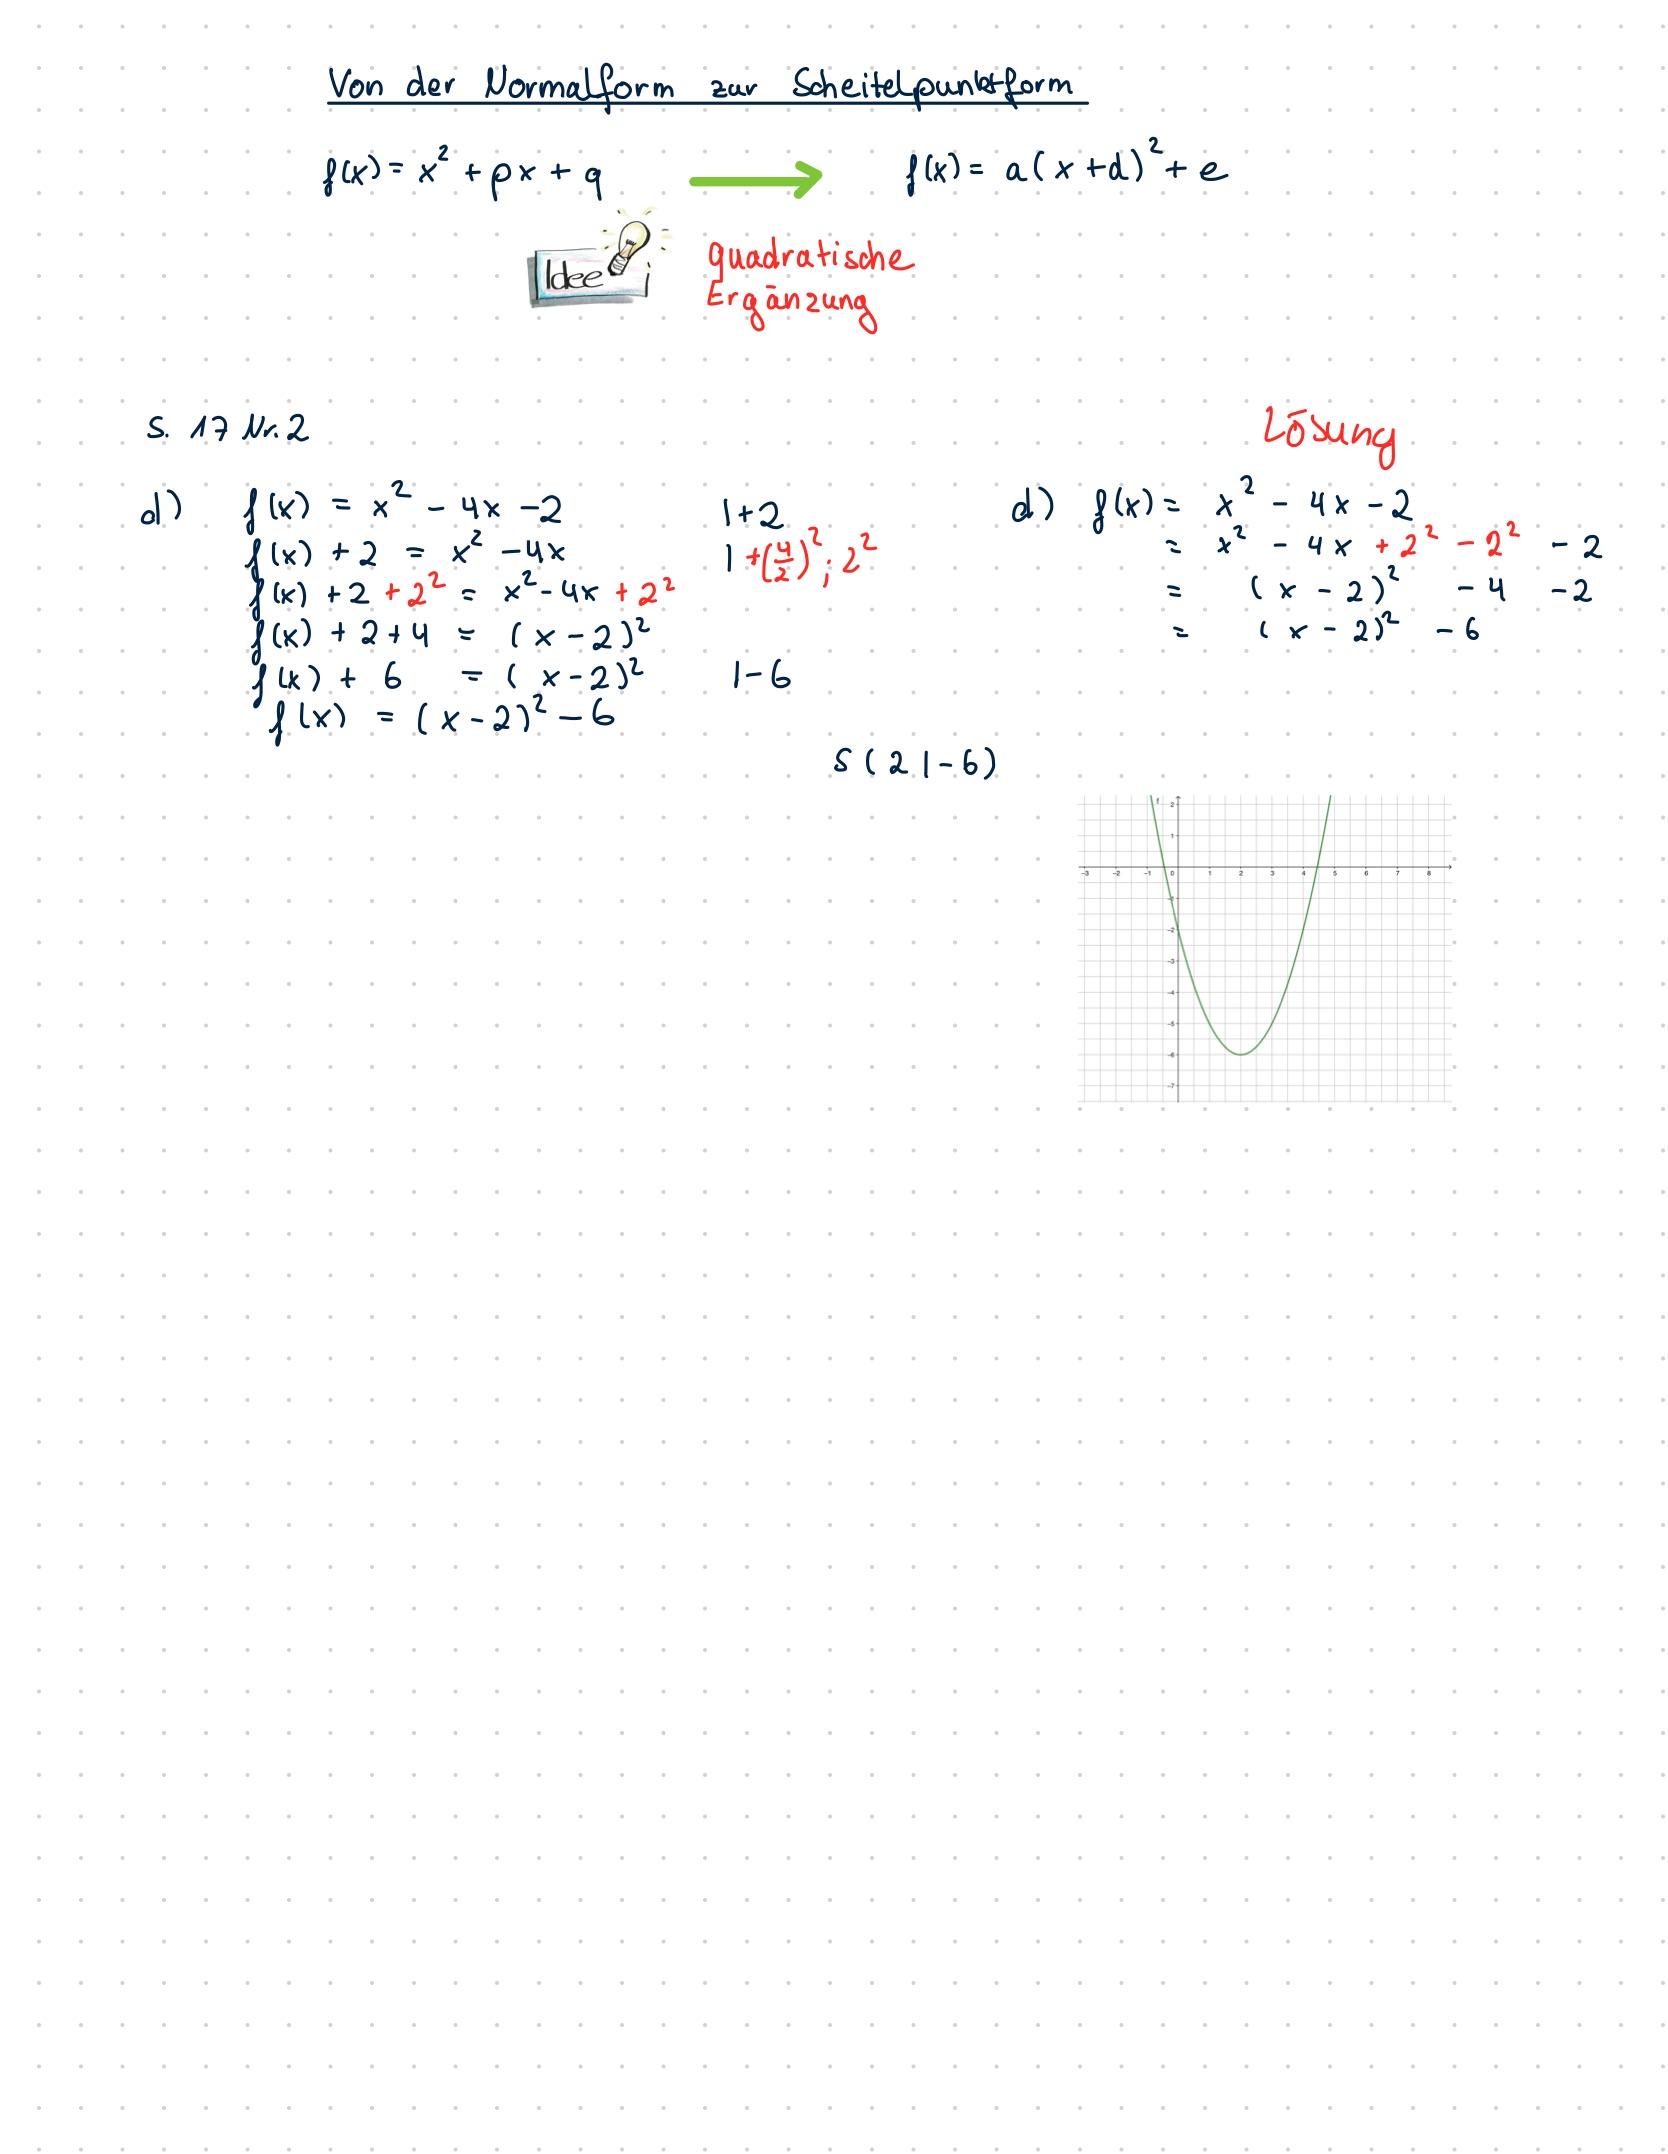 Von der Normalform zur Scheitelpunktform
f(x) = x² + px + q → f(x) = a(x+d)² + e
Idee
quadratische
Ergänzung
S. 17 Nr. 2
Lösung
d) f(x) = x² - 4x - 2 | +2
f(x) + 2 = x² - 4x | +(4/2)² ; 2²
f(x) + 2 + 2² = x² - 4x + 2²
f(x) + 2 + 4 = (x - 2)²
f(x) + 6 = (x - 2)² | -6
f(x) = (x - 2)² - 6
d) f(x) = x² - 4x - 2
= x² - 4x + 2² - 2² - 2
= (x - 2)² - 4 - 2
= (x - 2)² - 6
S (2 | -6)
f
2
1
-3 -2 -1 0 1 2 3 4 5 6 7 8
-1
-2
-3
-4
-5
-6
-7